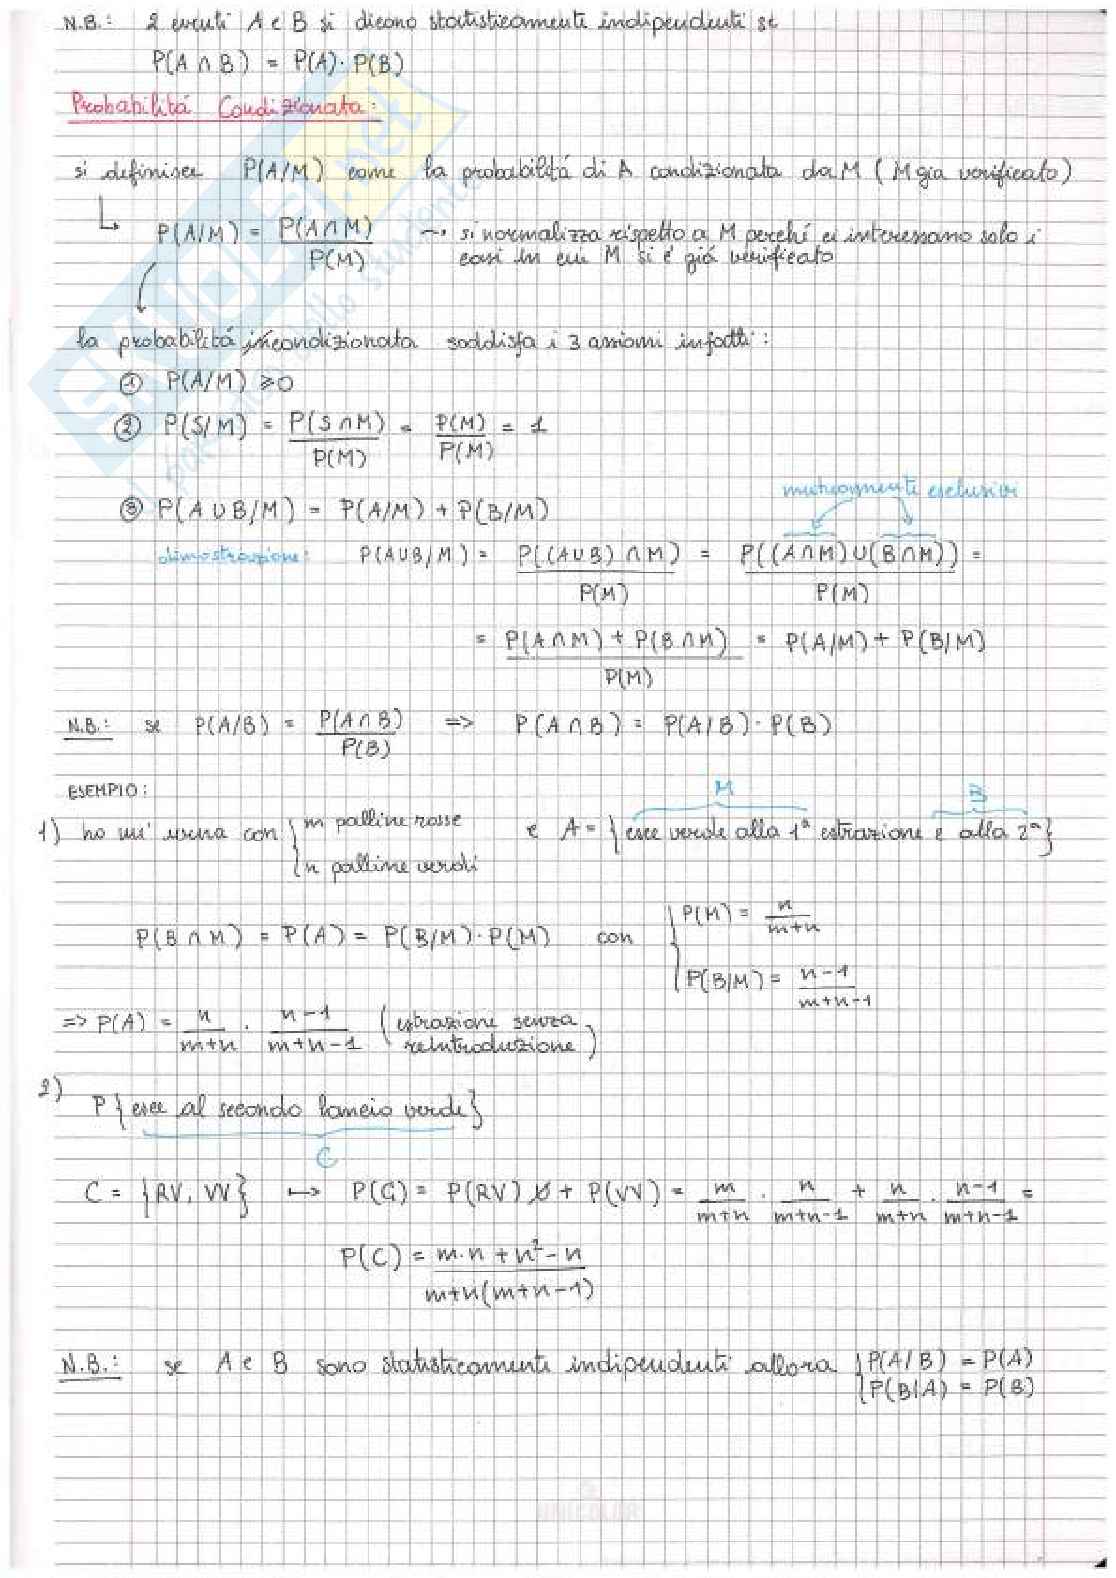 N.B.: 2 eventi A e B si dicono statisticamente indipendenti se
P(A ∩ B) = P(A) · P(B)
Probabilitá Condizionata:
si definisce P(A/M) come la probabilitá di A condizionata da M (M gia verificato)
P(A/M) = P(A∩M) / P(M) → si normalizza rispetto a M perché ci interessano solo i
casi in cui M si é giá verificato
la probabilitá incondizionata soddisfa i 3 assiomi infatti:
① P(A/M) ⩾ 0
② P(S/M) = P(S∩M) / P(M) = P(M) / P(M) = 1
mutuamente esclusivi
③ P(A∪B/M) = P(A/M) + P(B/M)
dimostrazione: P(A∪B/M) = P((A∪B)∩M) / P(M) = P((A∩M)∪(B∩M)) / P(M) =
= P(A∩M) + P(B∩M) / P(M) = P(A/M) + P(B/M)
N.B.: se P(A/B) = P(A∩B) / P(B) => P(A∩B) = P(A/B) · P(B)
ESEMPIO:
M B
1) ho un' urna con { m palline rosse e A = {esce verde alla 1ª estrazione e alla 2ª}
n palline verdi
P(B∩M) = P(A) = P(B/M) · P(M) con { P(M) = n / m+n
P(B/M) = n-1 / m+n-1
=> P(A) = n / m+n · n-1 / m+n-1 (estrazione senza
reintroduzione)
2) P{esce al secondo lancio verde}
C
C = {RV, VV} → P(C) = P(RV) + P(VV) = m / m+n · n / m+n-1 + n / m+n · n-1 / m+n-1 =
P(C) = m·n + n² - n / m+n(m+n-1)
N.B.: se A e B sono statisticamente indipendenti allora { P(A/B) = P(A)
P(B/A) = P(B)
SKUOLA.net